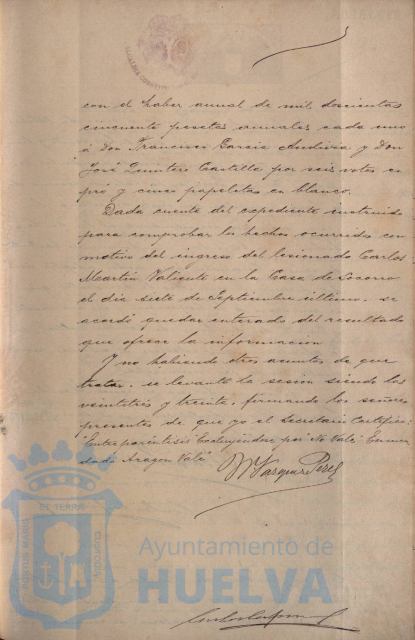 con el haber anual de mil doscientas
cincuenta pesetas anuales cada uno
á Don Francisco Garcia Andivia y Don
José Quintero Castilla por seis votos en
pró y cinco papeletas en blanco.
Dada cuenta del expediente instruido
para comprobar los hechos ocurridos con
motivo del ingreso del lesionado Carlos
Martin Valiente en la Casa de Socorro
el dia siete de Septiembre último, se
acordó quedar enterado del resultado
que ofrece la informacion
Y no habiendo otros asuntos de que
tratar, se levantó la sesion siendo las
veintitres y treinta, firmando los señores
presentes de que yo el Secretario Certifico:
Entre paréntisis
por No Vale
dado Aragon Vale
Vazquez Perez
EL TERRA
PORTUS MARIS
CUSTODIA
Ayuntamiento de
HUELVA